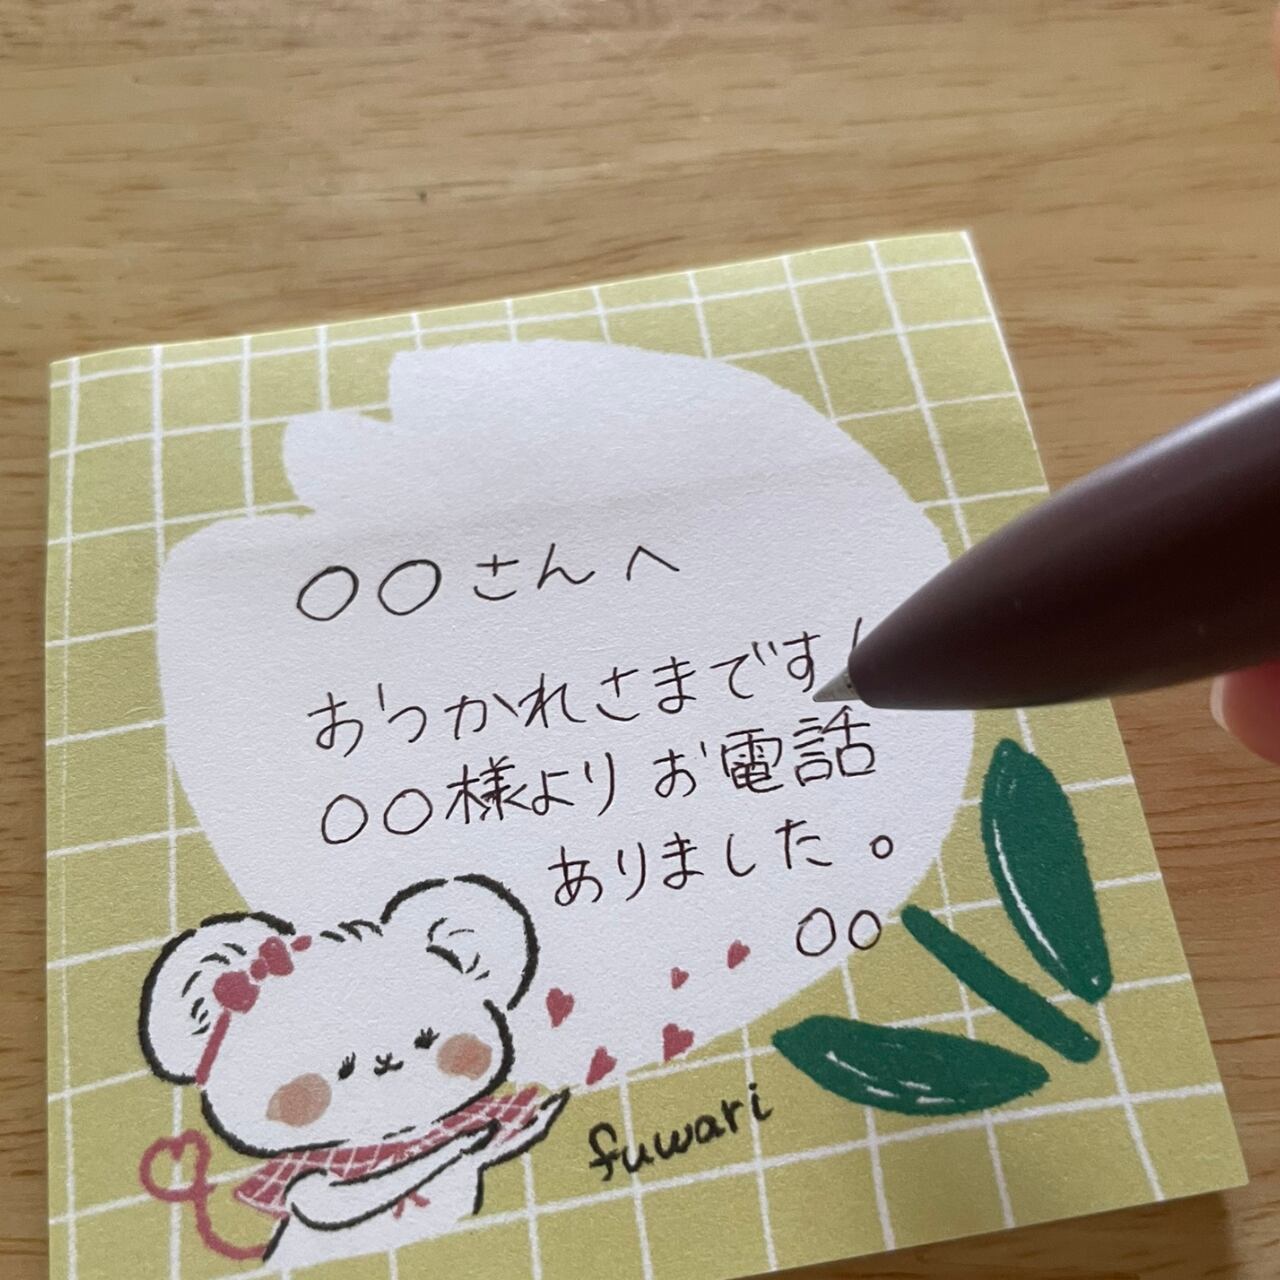 ○○さんへ
おつかれさまです!
○○様よりお電話
ありました。
○○
fuwari